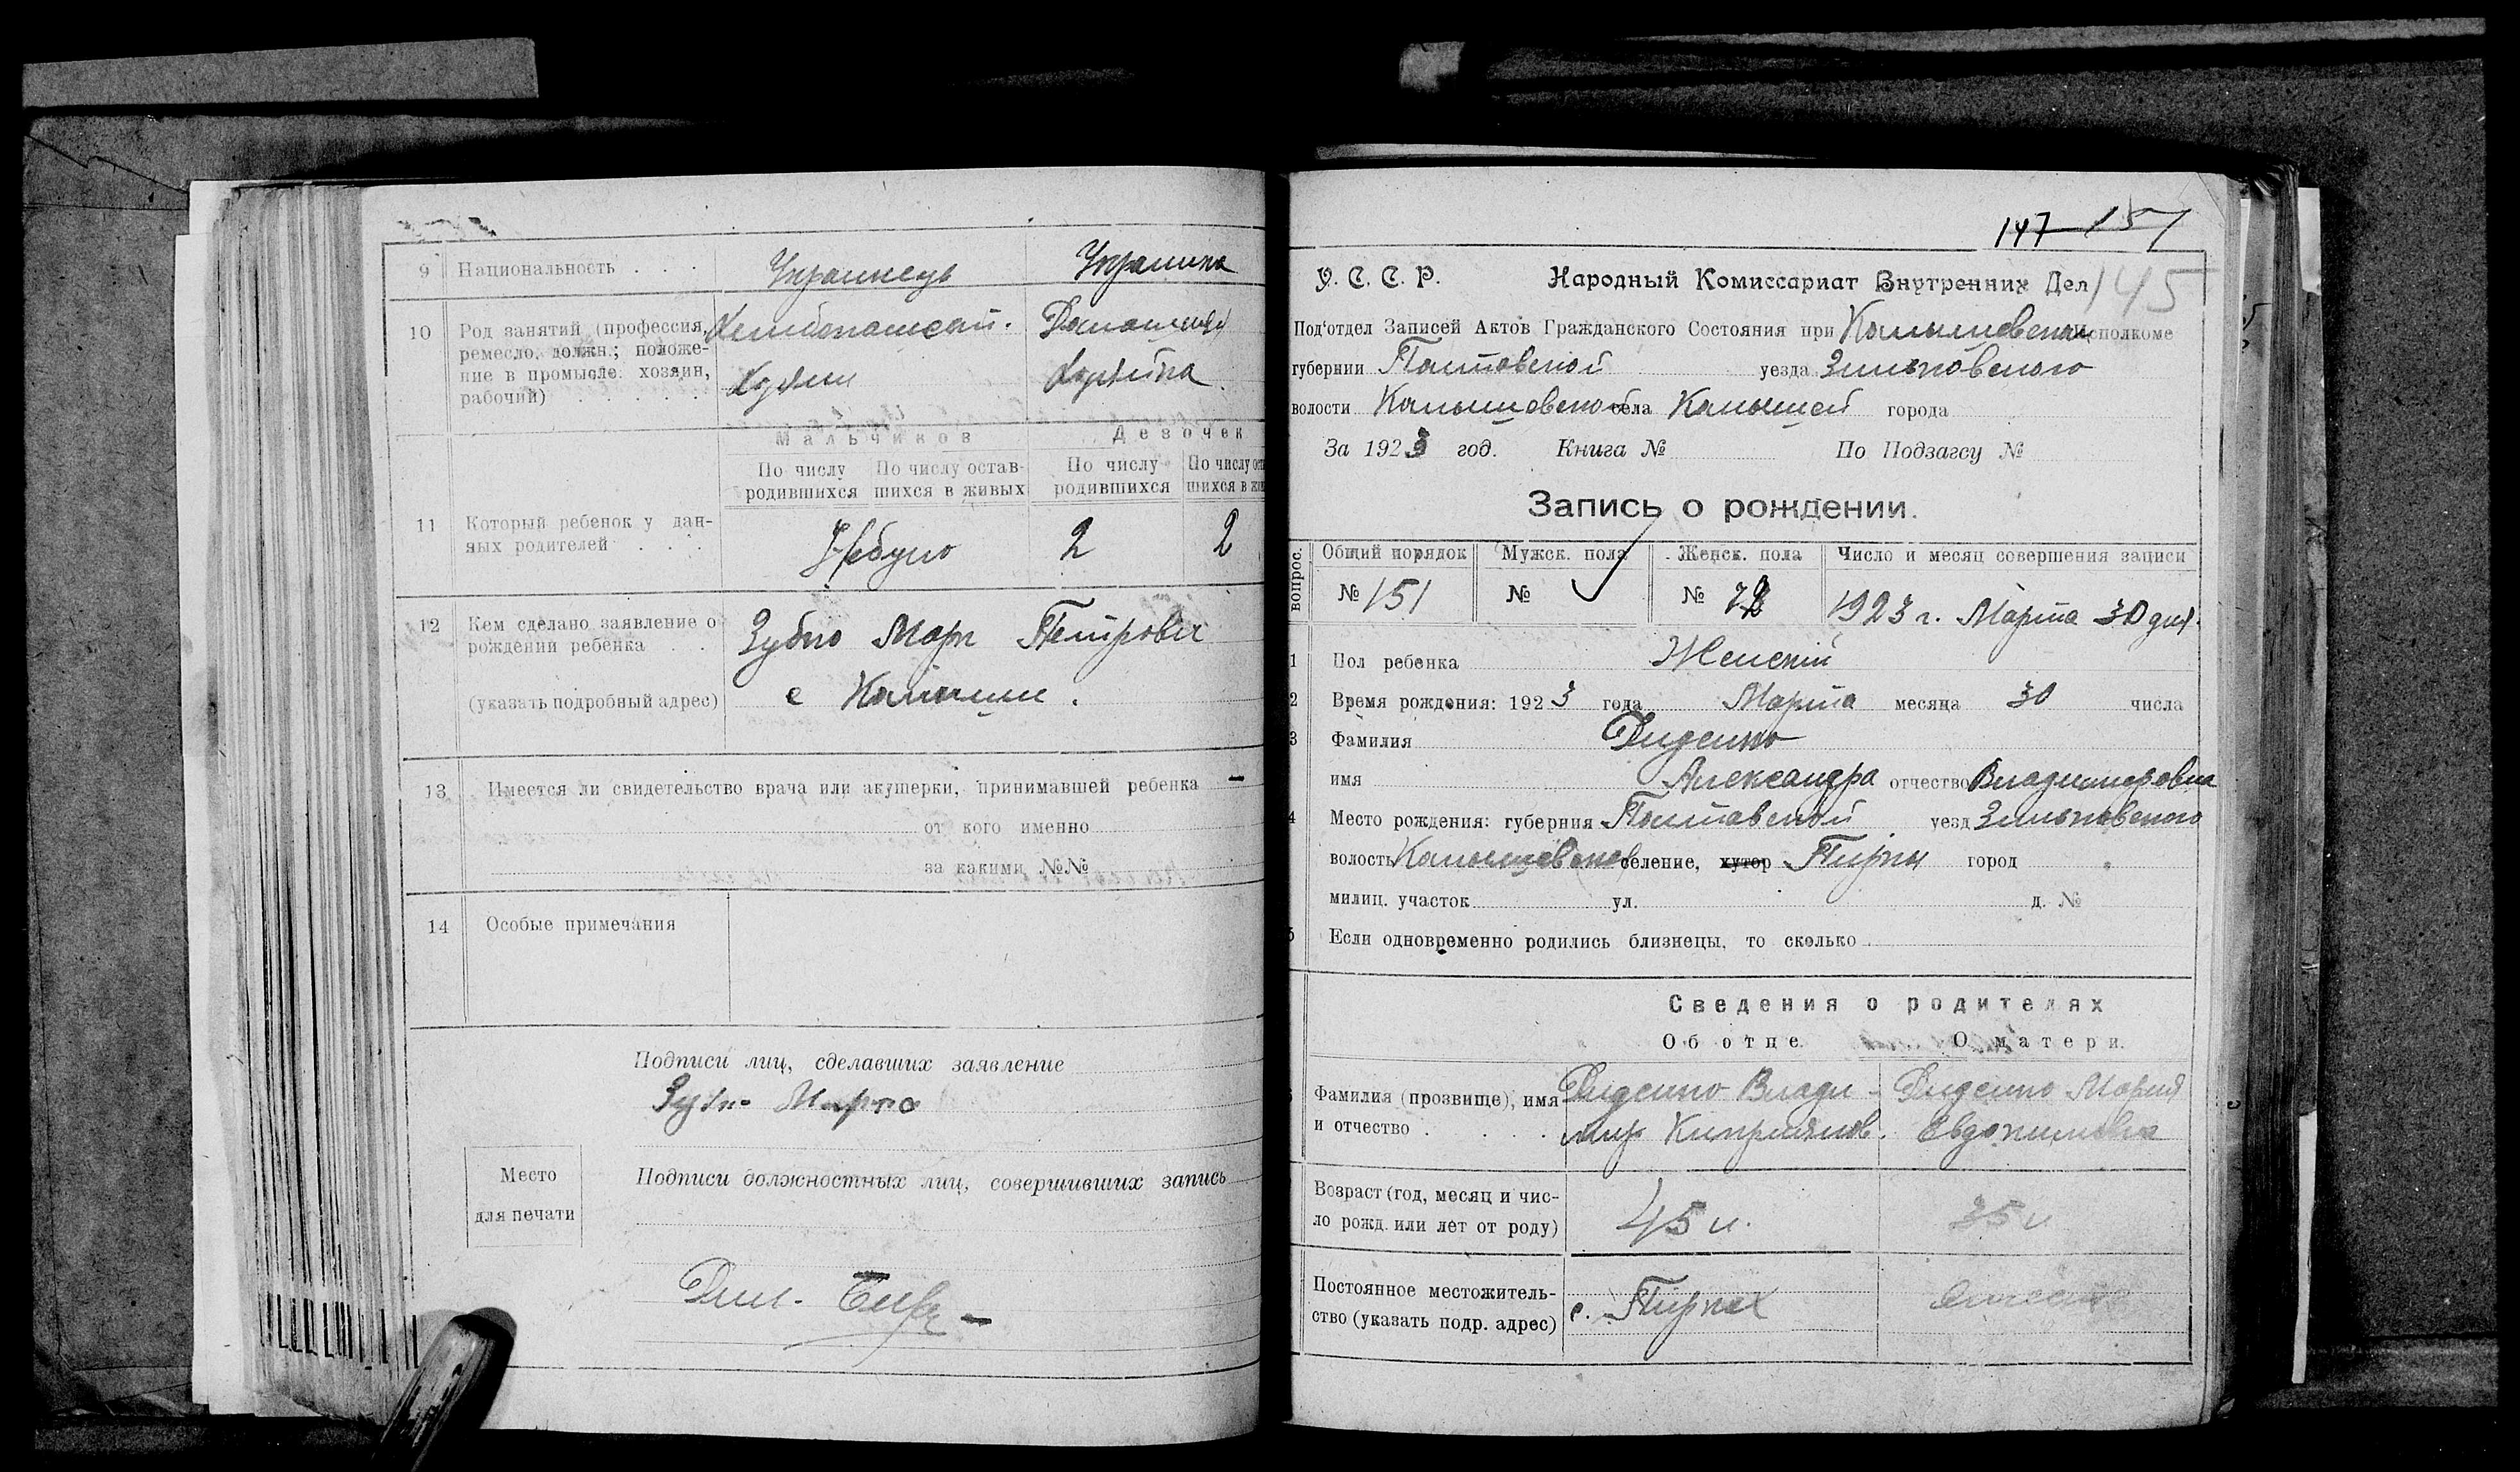 9 Национальность . . . Украинець Украинка
10 Род занятий (профессия, Хлебопашест. Домашняя
ремесло, должн.; положе-
ние в промысле: хозяин, Хозяин Хозяйка
рабочий) . . . . .
Мальчиков Девочек
По числу По числу остав- По числу По числу ост
родившихся шихся в живых родившихся шихся в жи
11 Который ребенок у дан- Небуло 2 2
ных родителей . . .
12 Кем сделано заявление о Зубко Марк Петрович
рождении ребенка . .
(указать подробный адрес) с Камыши.
13 Имеется ли свидетельство врача или акушерки, принимавшей ребенка —
от кого именно
за какими №№
14 Особые примечания
Подписи лиц, сделавших заявление
Зубко Марко
Место
для печати
Подписи должностных лиц, совершивших запись
147 151
У. С. С. Р. Народный Комиссариат Внутренних Дел 145
Под'отдел Записей Актов Гражданского Состояния при исполкоме
губернии Полтавской уезда Зиньковского
волости села города
За 1923 год. Книга № По Подзагсу №
Запись о рождении.
вопрос. Общий порядок Мужск. пола Женск. пола Число и месяц совершения записи
№ 151 № № 1923 г. Марта 30 дня.
1 Пол ребенка Женский
2 Время рождения: 1923 года Марта месяца 30 числа
3 Фамилия Диденко
имя Александра отчество Владимировна
4 Место рождения: губерния Полтавской уезд Зиньковского
волость селение, хутор Пирки город
милиц. участок ул. д. №
5 Если одновременно родились близнецы, то сколько
Сведения о родителях
Об отце. О матери.
Фамилия (прозвище), имя Диденко Влади- Диденко Мария
и отчество . . . . мир Киприянов. Евдокимовна
Возраст (год, месяц и чис-
ло рожд. или лет от роду) 45 л. 35 л
Постоянное местожитель-
ство (указать подр. адрес) с. Пирках